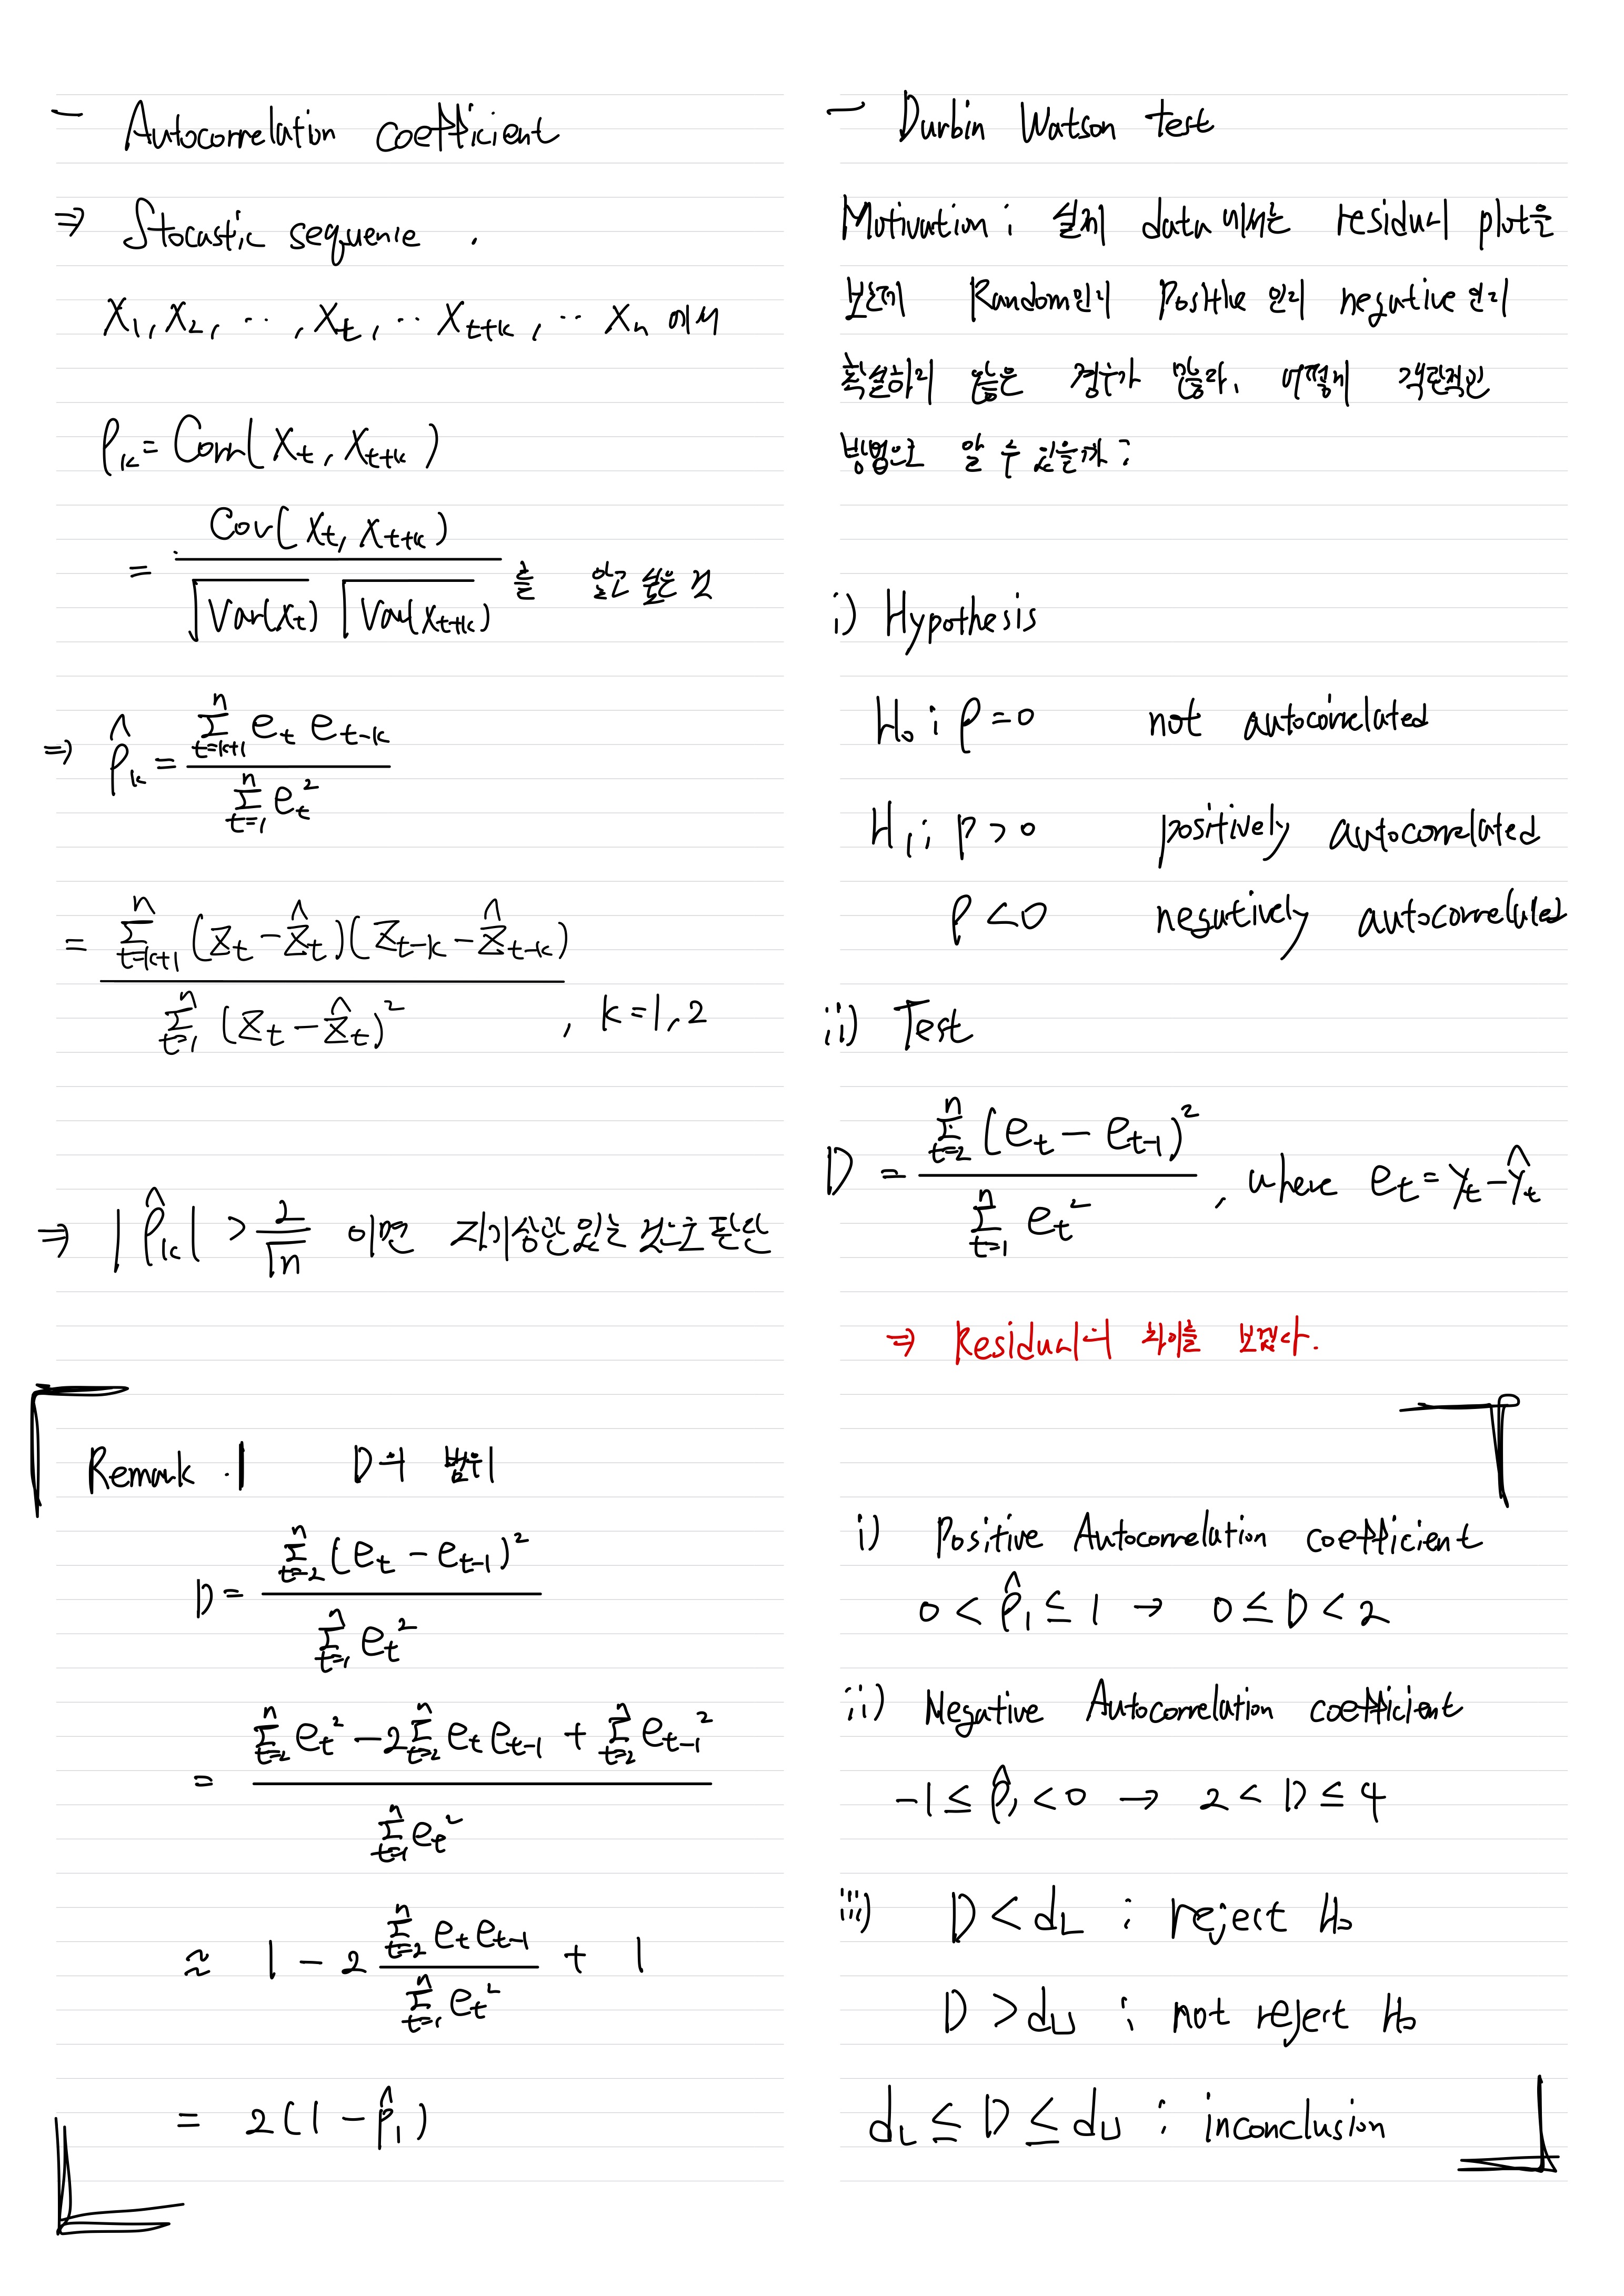 - Autocorrelation coefficient
⇒ Stocastic sequence.
X₁, X₂, ‥, Xₜ, ‥ Xₜ₊ₖ, ‥ Xₙ 에서
ρₖ = Corr(Xₜ, Xₜ₊ₖ)
= Cov(Xₜ, Xₜ₊ₖ) / √Var(Xₜ) √Var(Xₜ₊ₖ) 를 알고 싶은 것
⇒ ρ̂ₖ = Σ_{t=k+1}^{n} eₜ eₜ₋ₖ / Σ_{t=1}^{n} eₜ²
= Σ_{t=k+1}^{n} (Zₜ - Ẑₜ)(Zₜ₋ₖ - Ẑₜ₋ₖ) / Σ_{t=1}^{n} (Zₜ - Ẑₜ)² , k=1, 2
⇒ |ρ̂ₖ| > 2/√n 이면 자기상관있는 것으로 판단
Remark .1 D의 범위
D = Σ_{t=2}^{n} (eₜ - eₜ₋₁)² / Σ_{t=1}^{n} eₜ²
= (Σ_{t=2}^{n} eₜ² - 2Σ_{t=2}^{n} eₜeₜ₋₁ + Σ_{t=2}^{n} eₜ₋₁²) / Σ_{t=1}^{n} eₜ²
≈ 1 - 2 Σ_{t=2}^{n} eₜeₜ₋₁ / Σ_{t=1}^{n} eₜ² + 1
= 2(1 - ρ̂₁)
- Durbin Watson test
Motivation : 실제 data 에서는 residual plot을
보는데 Random인지 Positive 인지 negative인지
확실하지 않은 경우가 많다. 어떻게 객관적인
방법으로 알 수 있을까?
i) Hypothesis
H₀ : ρ = 0 not autocorrelated
H₁ : ρ > 0 positively autocorrelated
ρ < 0 negatively autocorrelated
ii) Test
D = Σ_{t=2}^{n} (eₜ - eₜ₋₁)² / Σ_{t=1}^{n} eₜ² , where eₜ = yₜ - ŷₜ
⇒ Residual의 차이를 보겠다.
i) Positive Autocorrelation coefficient
0 < ρ̂₁ ≤ 1 → 0 ≤ D < 2
ii) Negative Autocorrelation coefficient
-1 ≤ ρ̂₁ < 0 → 2 < D ≤ 4
iii) D < d_L : reject H₀
D > d_U : not reject H₀
d_L ≤ D ≤ d_U : inconclusion